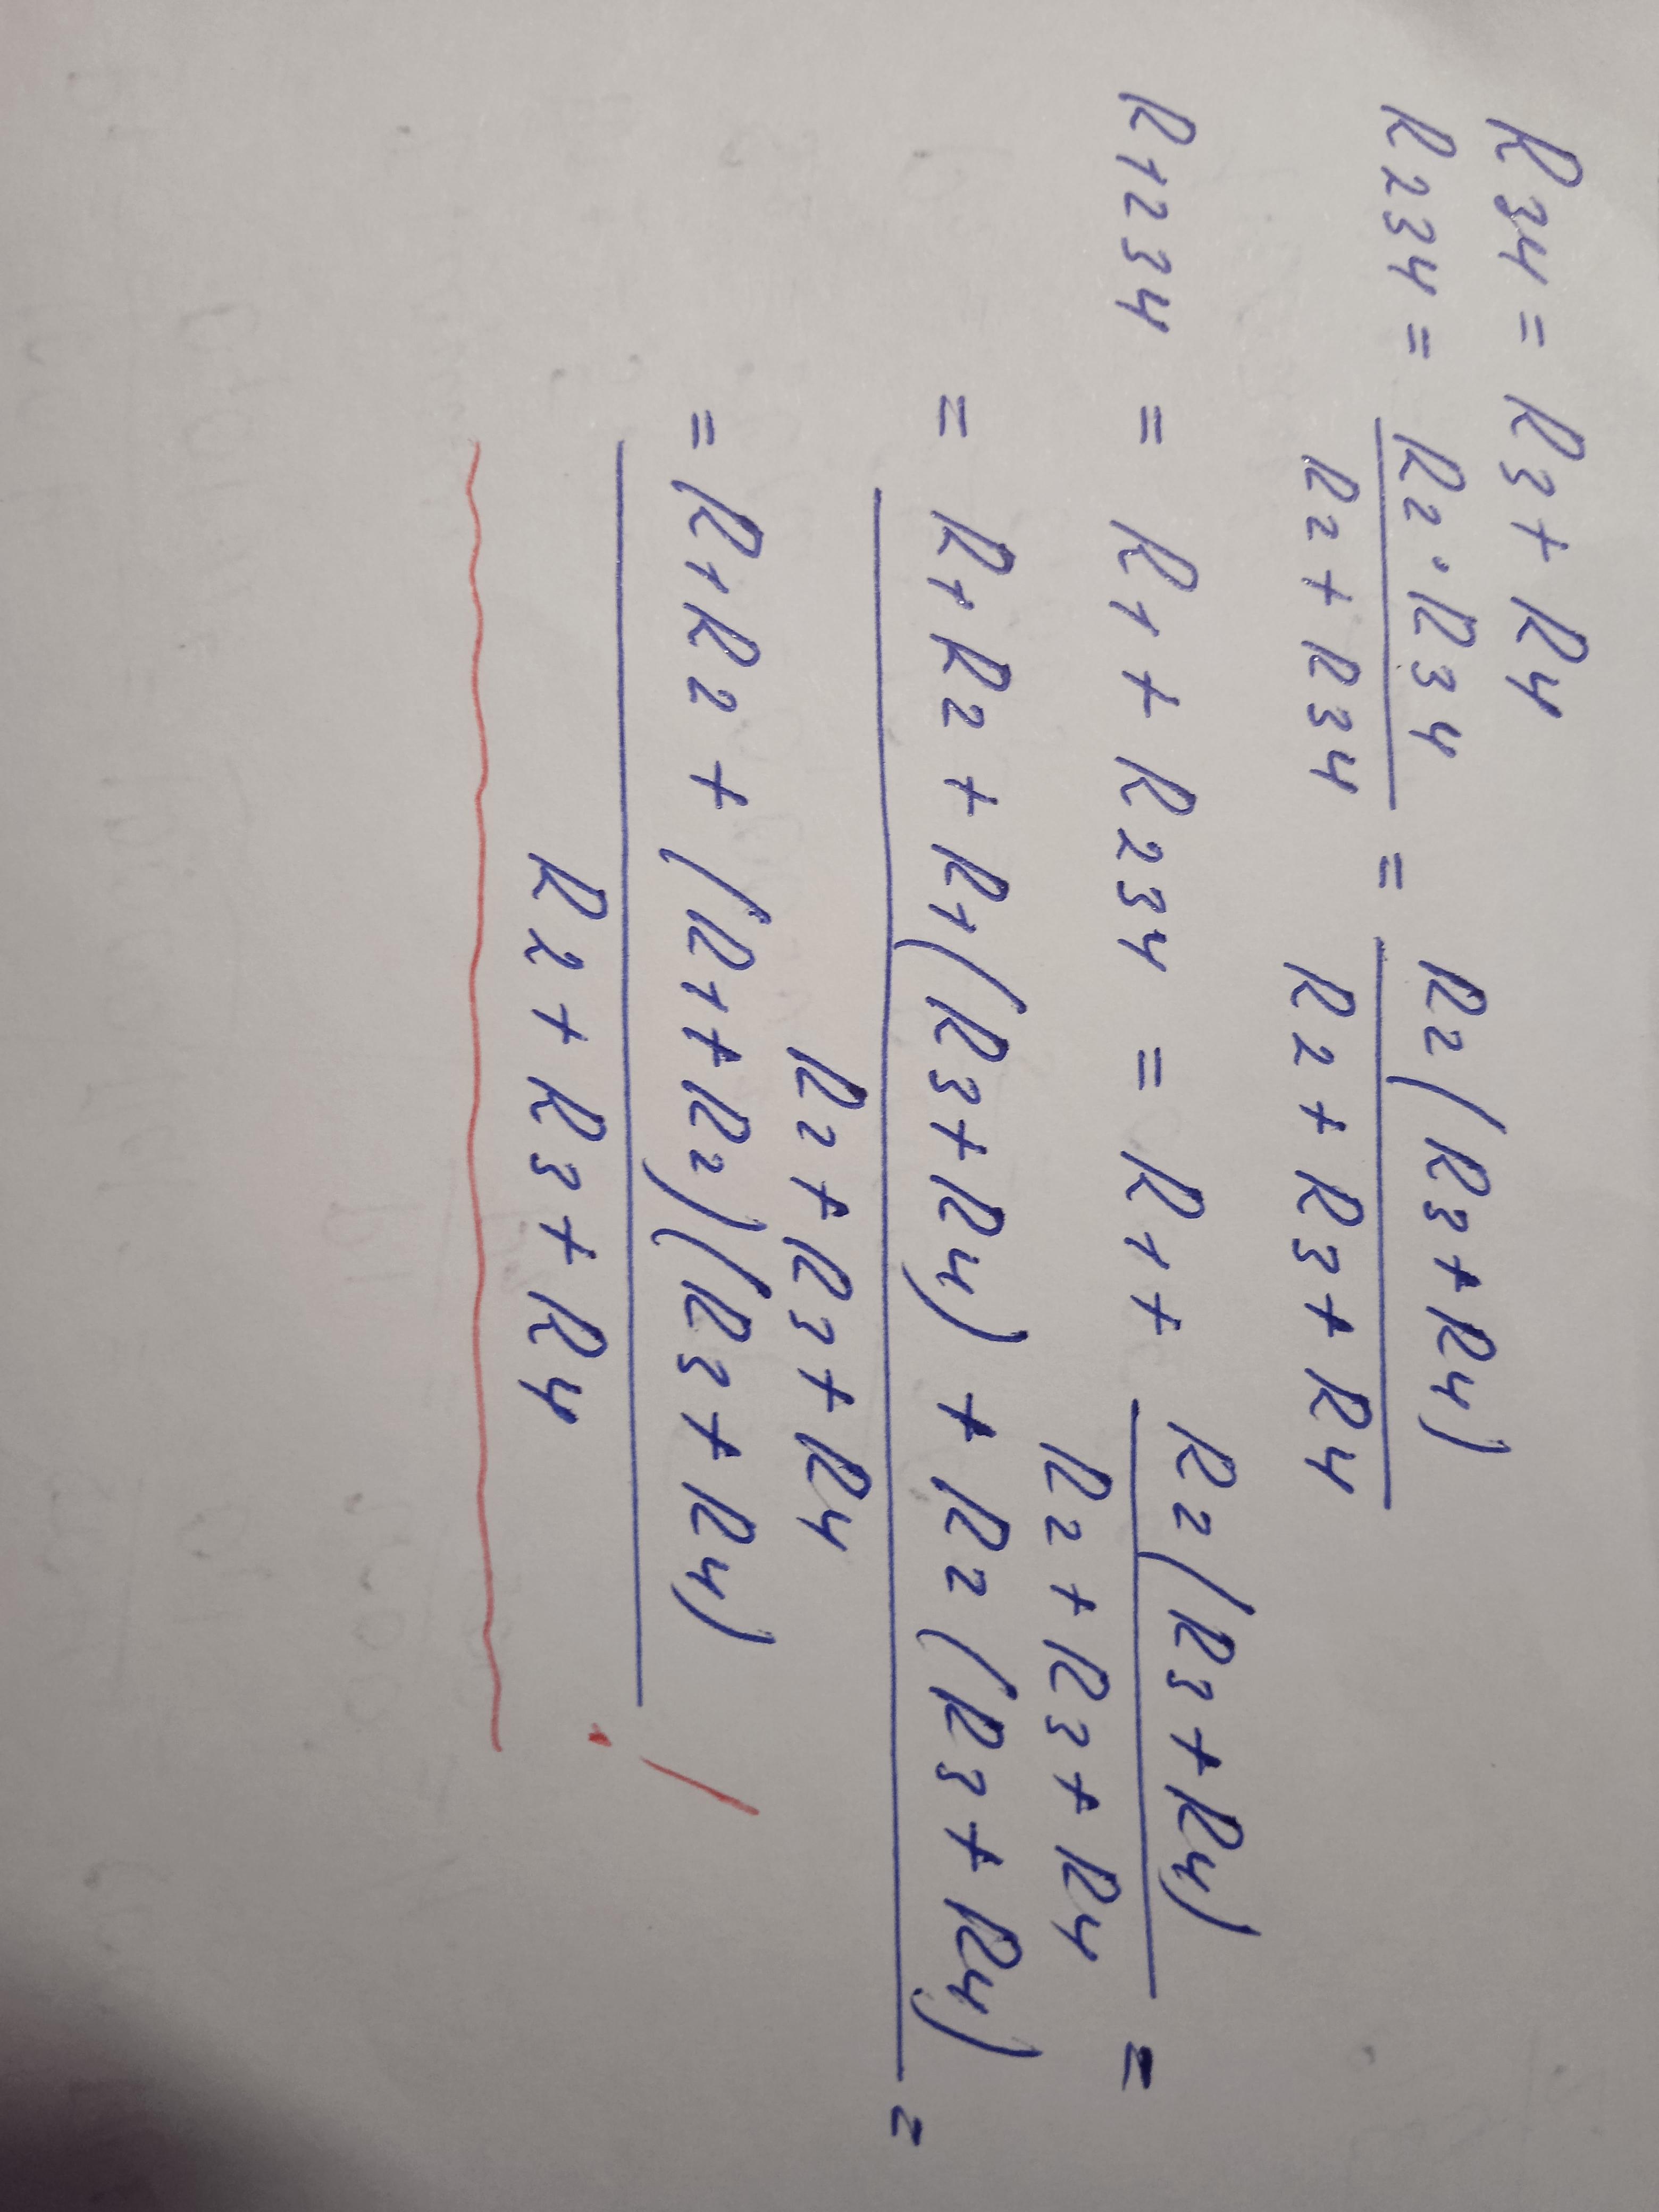 R34 = R3 + R4
R234 = R2 · R34 / R2 + R34 = R2(R3+R4) / R2 + R3 + R4
R1234 = R1 + R234 = R1 + R2(R3+R4) / R2 + R3 + R4 =
= R1 R2 + R1(R3+R4) + R2(R3+R4) / R2 + R3 + R4 =
= R1R2 + (R1+R2)(R3+R4) / R2 + R3 + R4 !